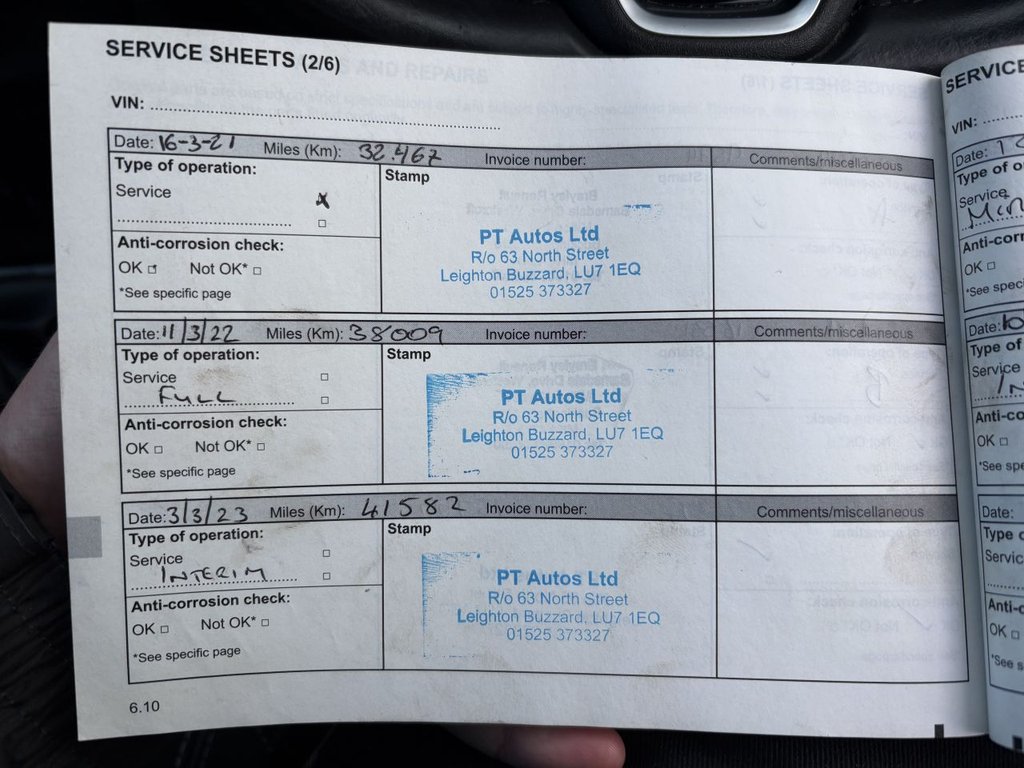 SERVICE SHEETS (2/6)
VIN:
Date: 16-3-21 Miles (Km): 32.467 Invoice number: Comments/miscellaneous
Type of operation:
Service
Stamp
PT Autos Ltd
R/o 63 North Street
Leighton Buzzard, LU7 1EQ
01525 373327
Anti-corrosion check:
OK Not OK*
*See specific page
Date: 11/3/22 Miles (Km): 38009 Invoice number: Comments/miscellaneous
Type of operation:
Service
FULL
Stamp
PT Autos Ltd
R/o 63 North Street
Leighton Buzzard, LU7 1EQ
01525 373327
Anti-corrosion check:
OK Not OK*
*See specific page
Date: 3/3/23 Miles (Km): 41582 Invoice number: Comments/miscellaneous
Type of operation:
Service
INTERIM
Stamp
PT Autos Ltd
R/o 63 North Street
Leighton Buzzard, LU7 1EQ
01525 373327
Anti-corrosion check:
OK Not OK*
*See specific page
6.10
SERVICE
VIN:
Date:
Type of
Service
OK
Date:
Type of
Service
OK
Date:
Type
OK